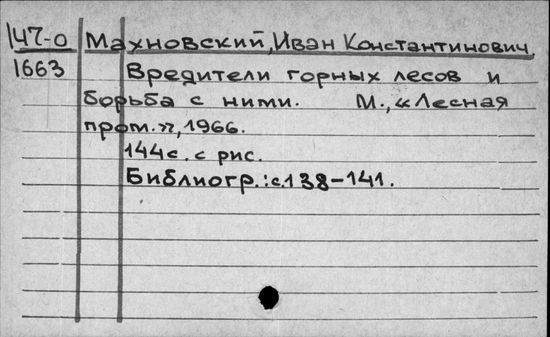 147-0 Махновский, Иван Константинович.
1663 Вредители горных лесов и
борьба с ними. М., «Лесная
пром.», 1966.
144с. с рис.
Библиогр.: с.138-141.